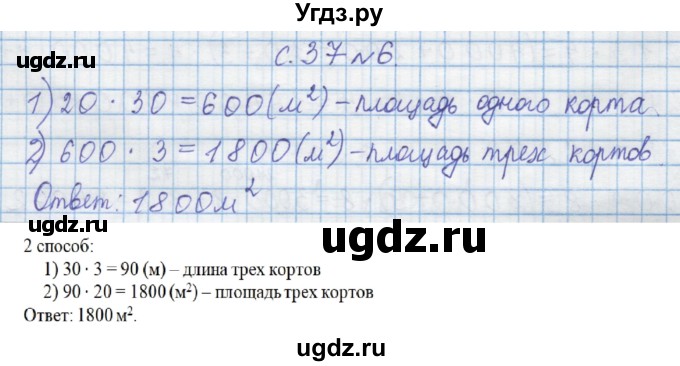 Угдз.ру
с. 37 №6.
1) 20 · 30 = 600 (м²) – площадь одного корта.
2) 600 · 3 = 1800 (м²) – площадь трех кортов.
Ответ: 1800 м²
2 способ:
1) 30 · 3 = 90 (м) – длина трех кортов
2) 90 · 20 = 1800 (м²) – площадь трех кортов
Ответ: 1800 м².
ugdz.ru
ugdz.ru
ugdz.ru
ugdz.ru
ugdz.ru
ugdz.ru
ugdz.ru